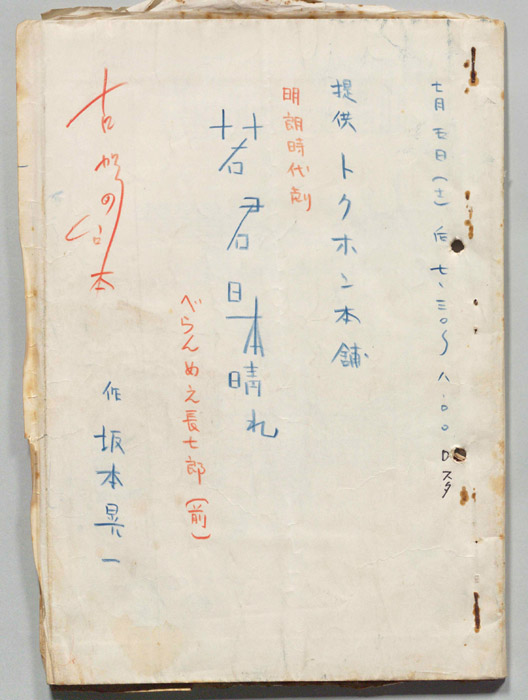 七月五日(土)后七、三〇〜八.〇〇Dスタ
提供 トクホン本舗
明朗時代劇
若君日本晴れ
べらんめえ長七郎(前)
作 坂本晃一
の台本